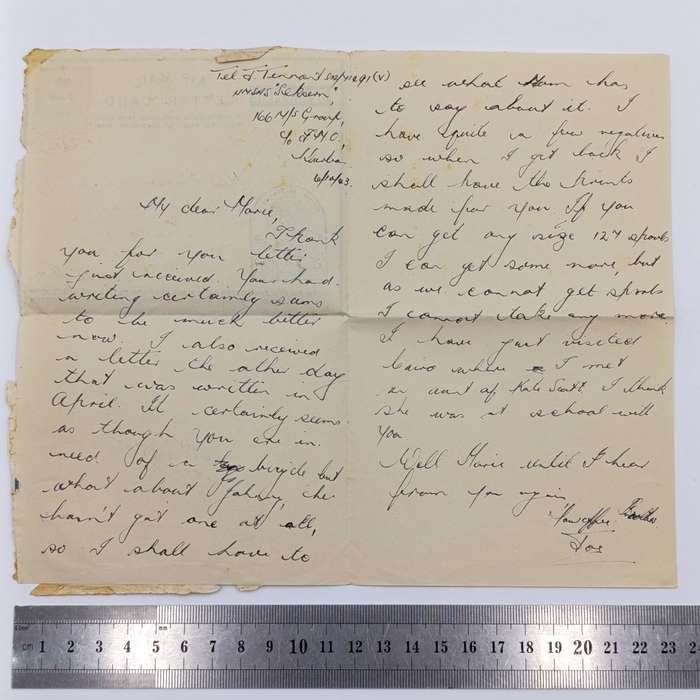 Tel J. Tennant 512/41291 (V)
HMSAS "Seksern",
166 M/S Group,
c/o F.M.O.,
6/10/43.
My dear Marie,
Thank
you for you letter
just received. Your hand
writing certainly seems
to be much better
now. I also received
a letter the other day
that was written in
April. It certainly seems
as though you are in
need of a bicycle but
what about Johnny, he
hasn't got one at all,
so I shall have to
see what Mum has
to say about it. I
have quite a few negatives
so when I get back I
shall have the prints
made for you If you
can get any size 127 spools
I can get some more, but
as we cannot get spools
I cannot take any more.
I have just visited
Cairo where I met
an aunt of Kate Scott. I think
she was at school with
you
Well Marie until I hear
from you again,
Your affec Brother
Jos
cm 1 2 3 4 5 6 7 8 9 10 11 12 13 14 15 16 17 18 19 20 21 22 23 24